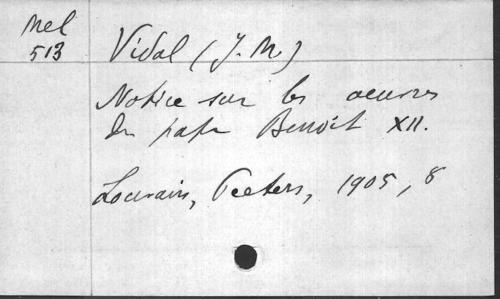 Mel
513
Vidal (J. M)
Notice sur les oeuvres
du pape Benoît XII.
Louvain, Peeters, 1905, 8